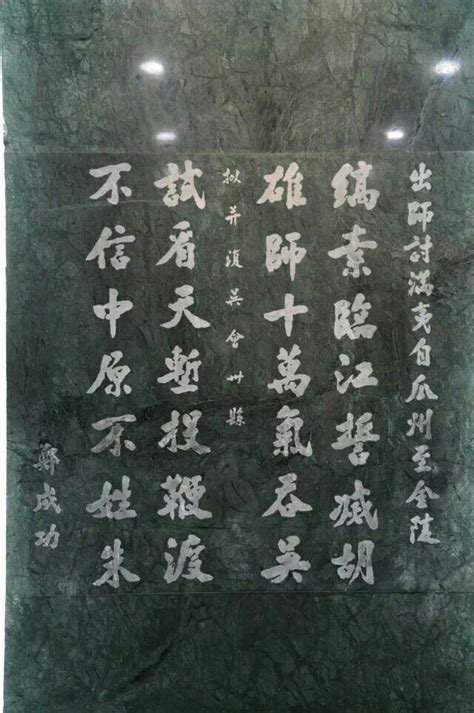 出師討滿夷自瓜州至金陵
縞素臨江誓滅胡
雄師十萬氣吞吳
拟并復吴會卅縣
試看天塹投鞭渡
不信中原不姓朱
鄭成功